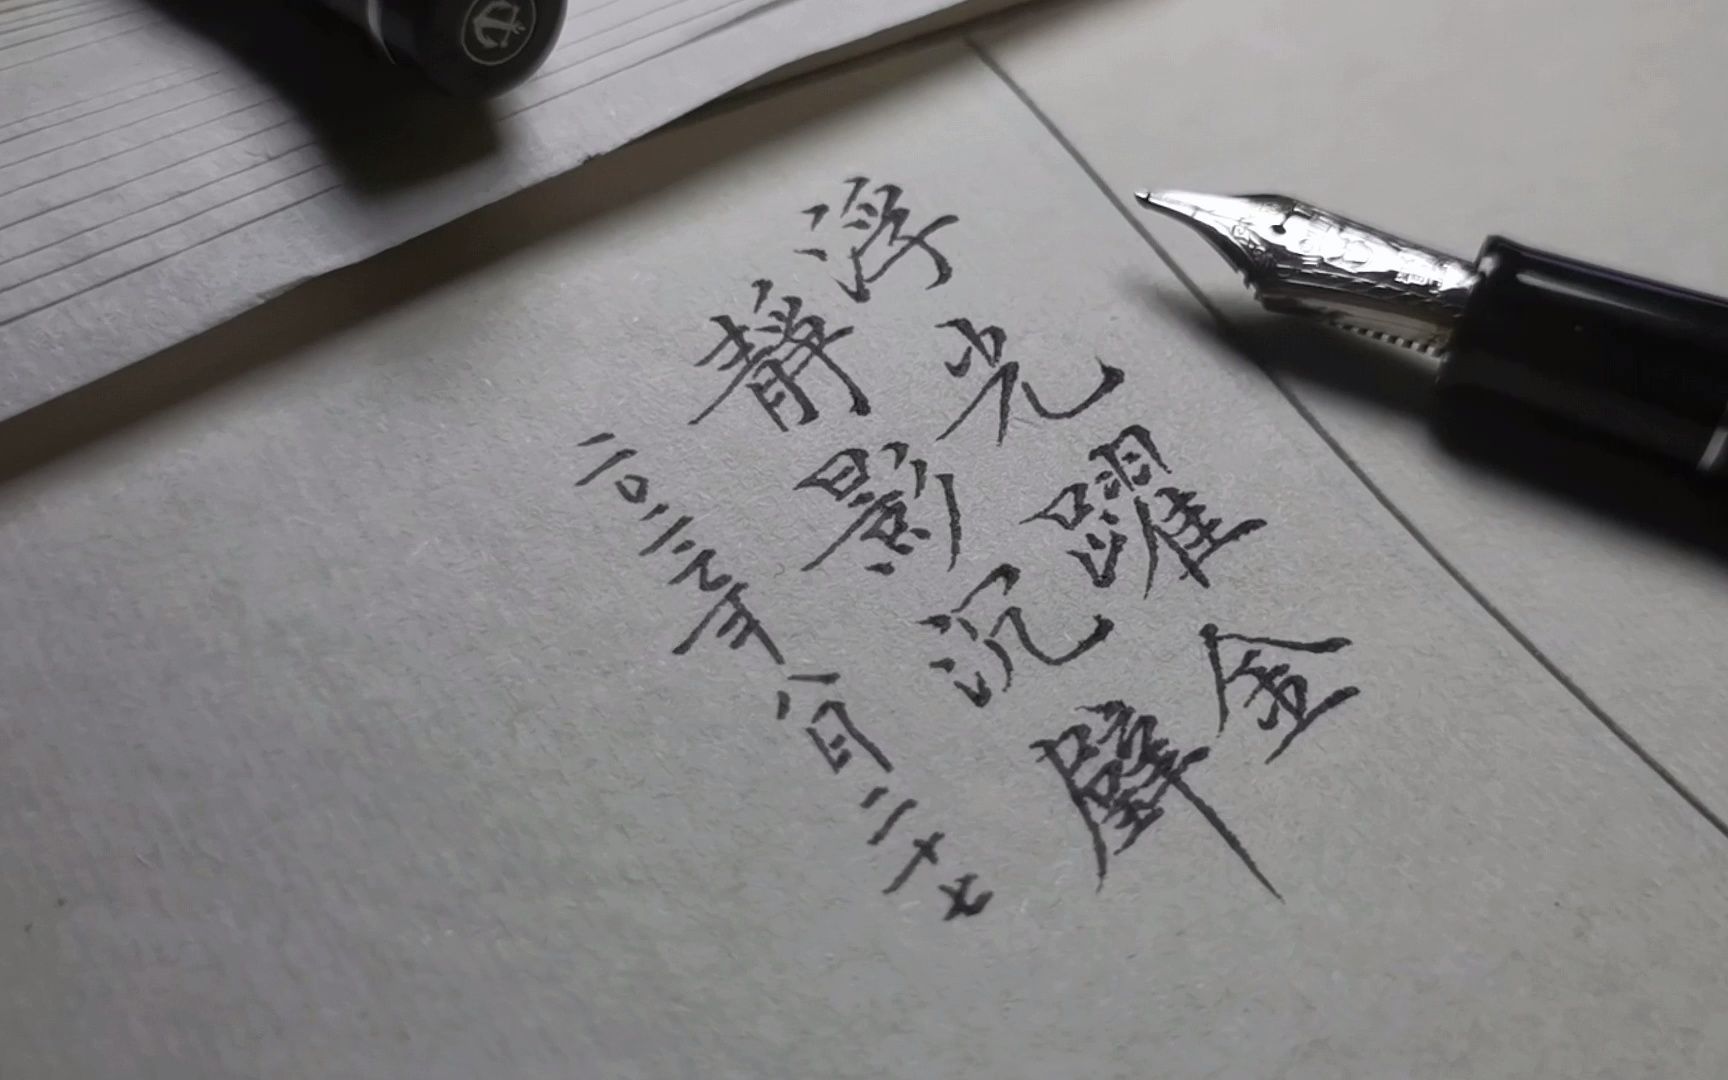 浮光躍金
靜影沉璧
二〇二三年八月二十七